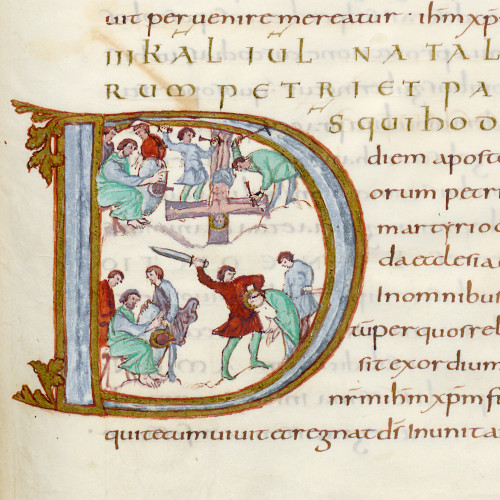 uit peruenire mereatur · ihm xp̄m
III KAL IUL NATAL
RUM PETRI ET PA
DS QUI HOD
diem apost
orum petri
martyrio c
da ecclesia
In omnibus
tū per quos rel
sit exordium
nr̄m ihm xp̄m fi
qui tecum uiuit et regnat dī In unita